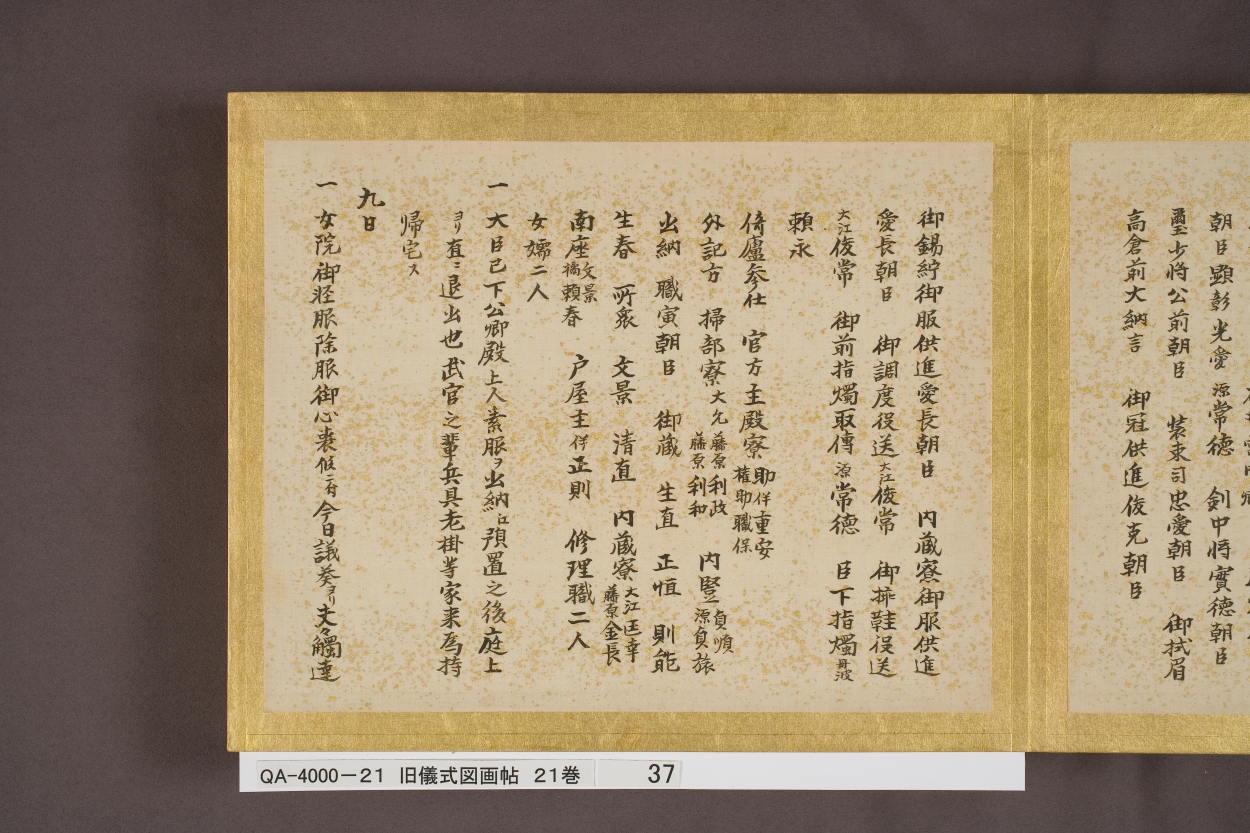 朝臣 顕彰 光愛 源常徳 剣中将 實徳朝臣
璽少将 公前朝臣 装束司 忠愛朝臣 御拭眉
高倉前大納言 御冠供進 俊克朝臣
御錫紵御服供進 愛長朝臣 内蔵寮御服供進
愛長朝臣 御調度役送 大江俊常 御挿鞋役送
大江俊常 御前指燭取傳 源常徳 臣下指燭 丹波
頼永
倚廬参仕 官方 主殿寮 助 伴重安 権助 職保
外記方 掃部寮 大允 藤原利政 藤原利和 内竪 源貞順 源貞旅
出納 職寅朝臣 御蔵 生直 正恒 則能
生春 所衆 文景 清直 内蔵寮 大江匡幸 藤原金長
南座 文景 橘頼春 戸屋主 伴正則 修理職二人
女嬬二人
一 大臣已下公卿殿上人素服ヲ出納江預置之後庭上
ヨリ直ニ退出也武官之輩兵具老掛等家来為持
帰宅ス
九日
一 女院御軽服除服御心喪候ニ付今日議奏ヨリ觸達
QA-4000-21 旧儀式図画帖 21巻 37